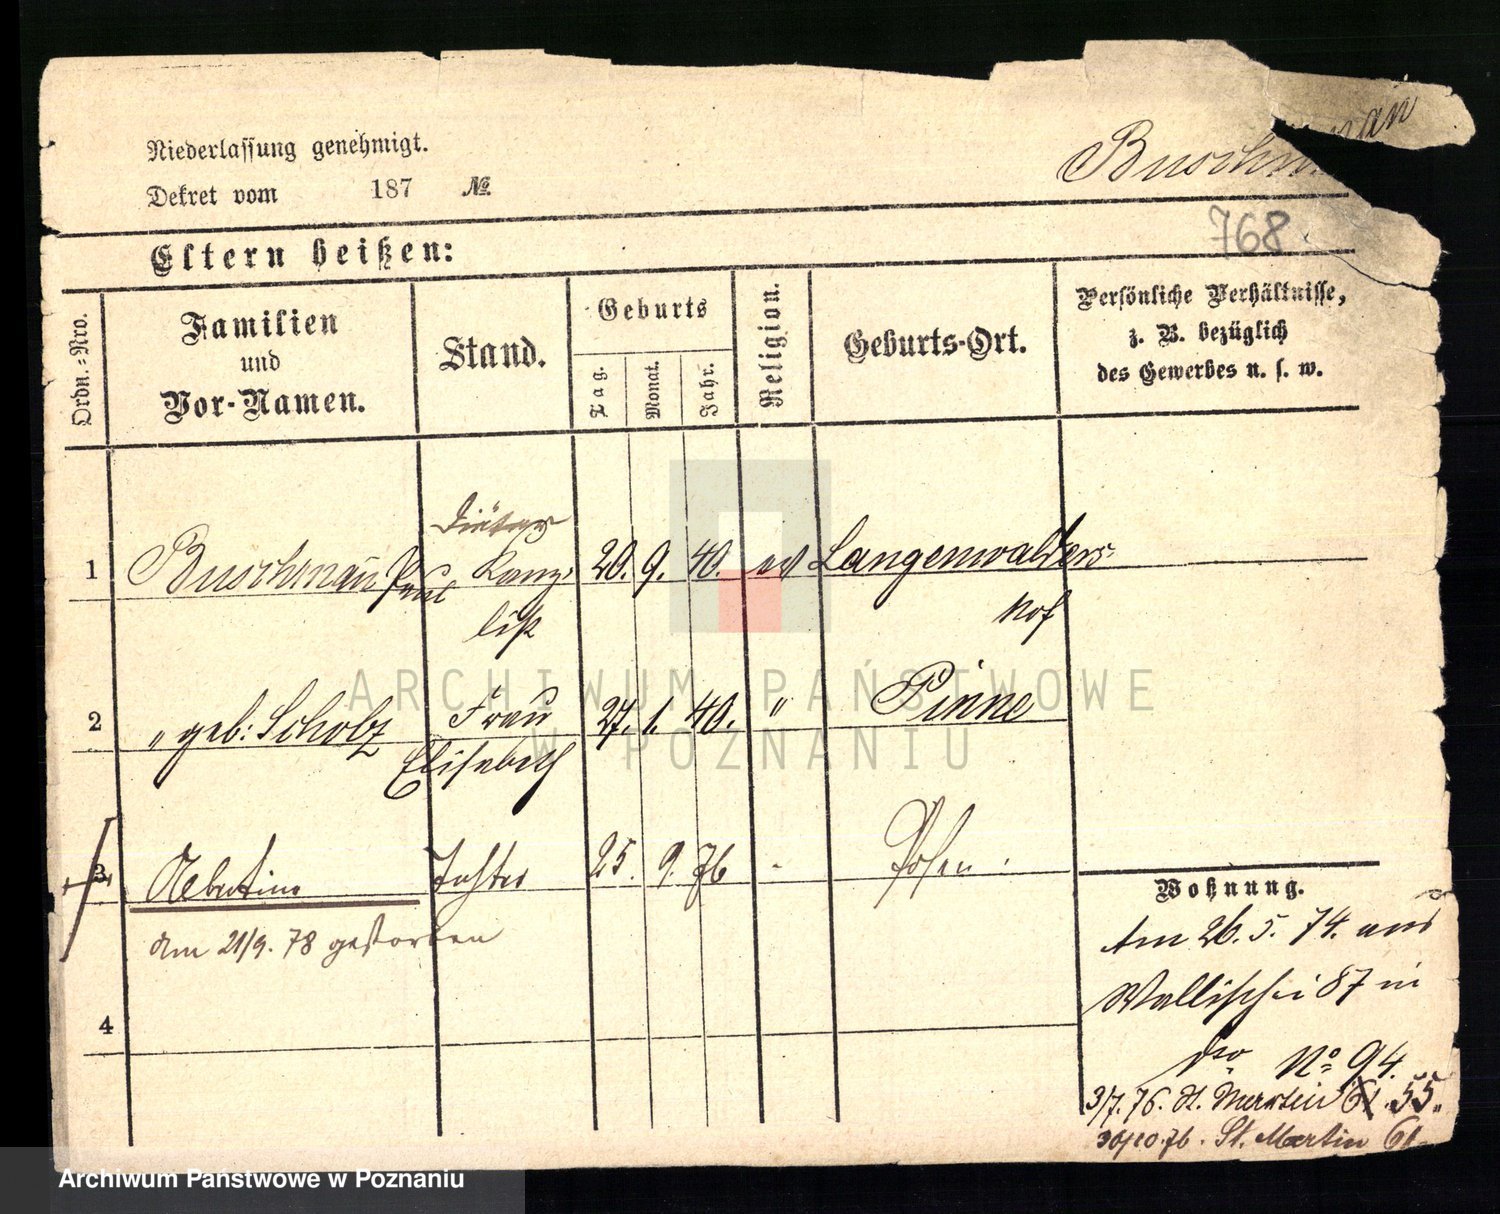 Niederlassung genehmigt.
Dekret vom 187 №.
Buschman
768
Eltern heißen:
Ordn.-Nro.
Familien
und
Vor-Namen.
Stand.
Geburts
Tag.
Monat.
Jahr.
Religion.
Geburts-Ort.
Persönliche Verhältnisse,
z. B. bezüglich
des Gewerbes u. s. w.
Diätar
1 Buschman Paul Kanz- 20. 9. 40. ev Langenwalders
list hof
2 " geb: Scholz Frau 27. 1. 40. " Pinne
Elisabeth
3 Albertine Tochter 25. 9. 76 - Posen
am 21/9. 78 gestorben
4
Wohnung.
Am 26. 5. 74. aus
Wallischei 87 in
dso No 94.
3/7. 76. St. Martin 61. 55.
30/10.76. St. Martin 61
ARCHIWUM PAŃSTWOWE
W POZNANIU
Archiwum Państwowe w Poznaniu